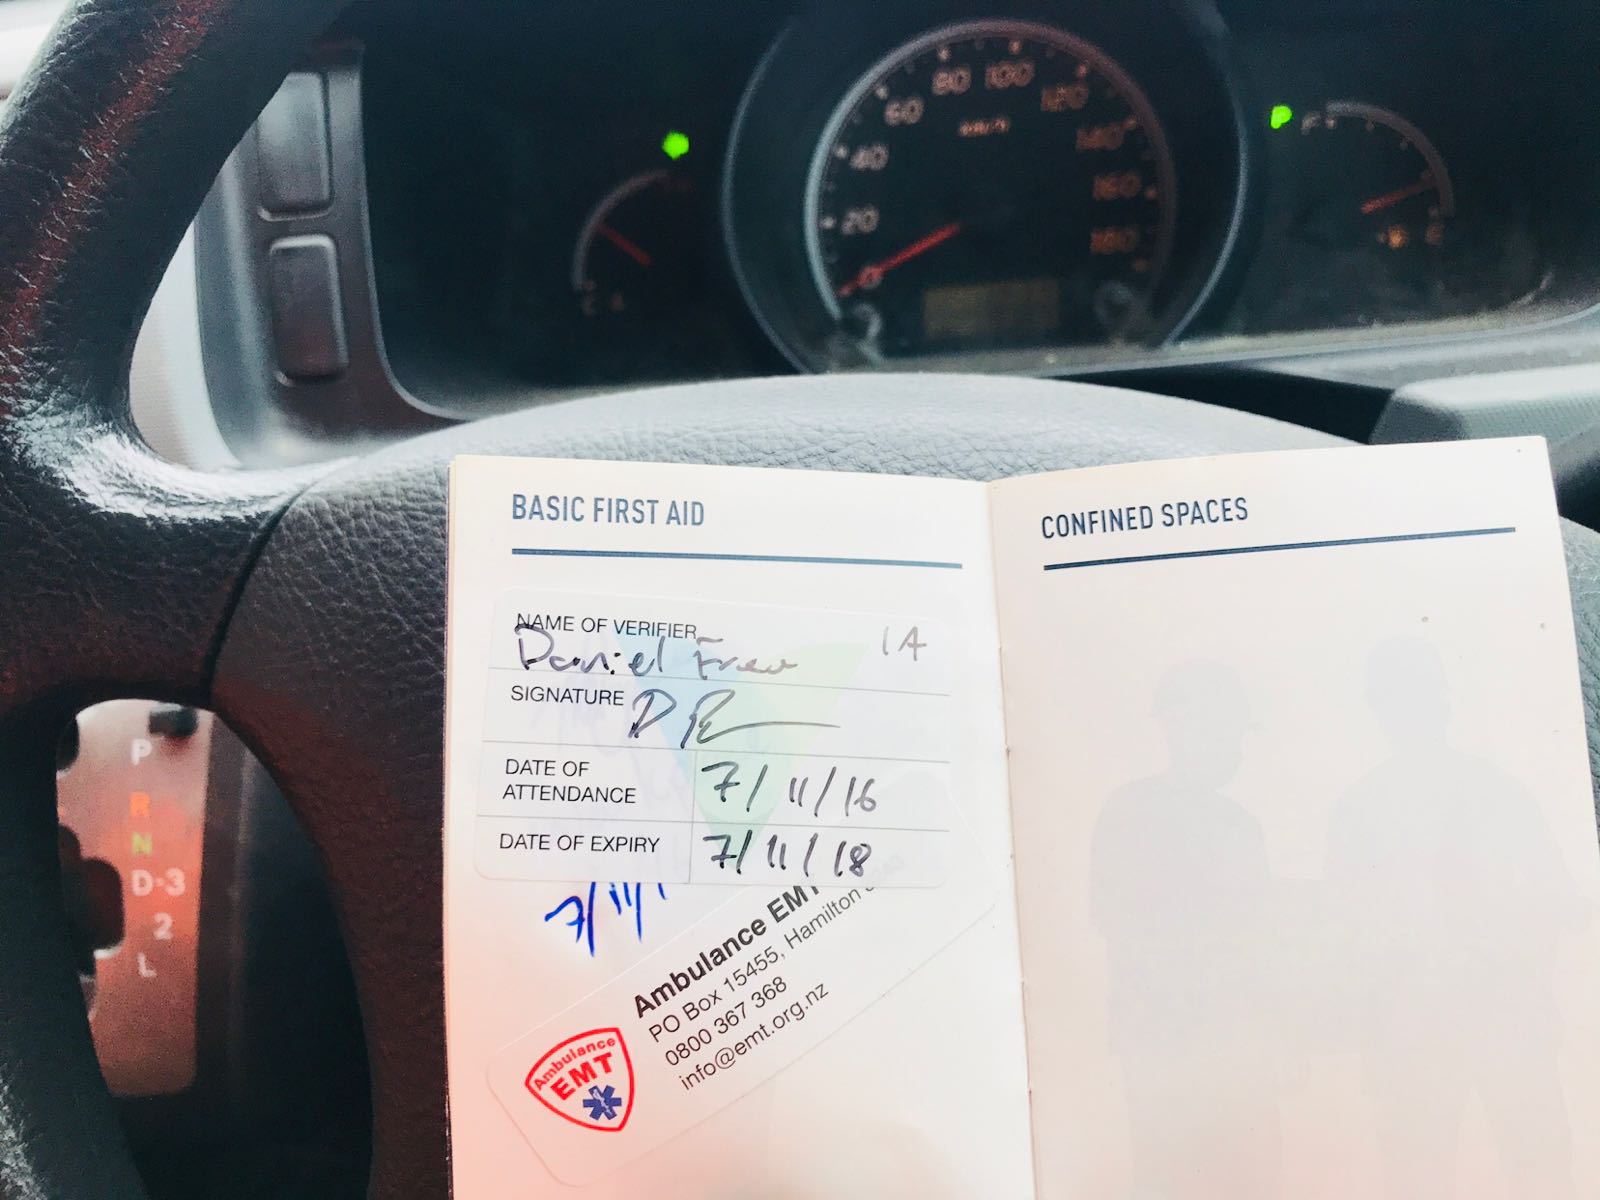 80 100
60 120
km/h
40 140
20 160
0 180
P F
C
E
BASIC FIRST AID
NAME OF VERIFIER
Daniel 1A
SIGNATURE
DATE OF
ATTENDANCE 7/11/16
DATE OF EXPIRY 7/11/18
7/11/1
Ambulance EMT
PO Box 15455, Hamilton
0800 367 368
info@emt.org.nz
Ambulance
EMT
CONFINED SPACES
P
R
N
D-3
2
L